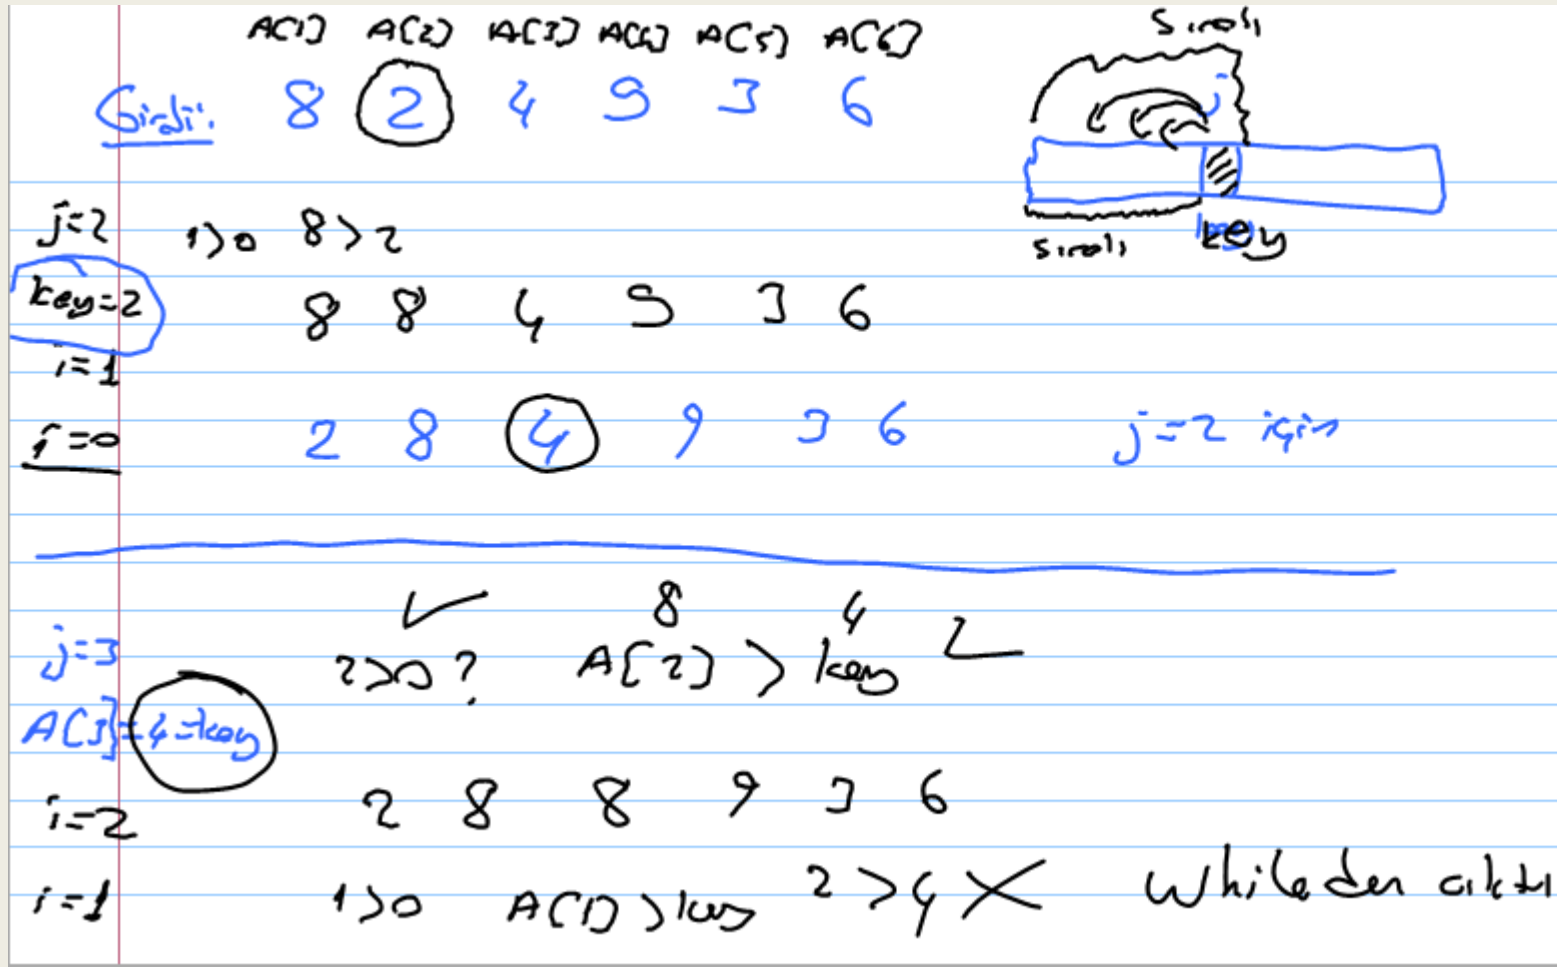 A[1] A[2] A[3] A[4] A[5] A[6]
Girdi: 8 2 4 9 3 6
sıralı
j
sıralı key
j=2 1>0 8>2
key=2 8 8 4 9 3 6
i=1
i=0 2 8 4 9 3 6 j=2 için
j=3 2>0 ? A[2] > key
8 4
A[3]=4=key
i=2 2 8 8 9 3 6
i=1 1>0 A[1]>key 2>4 Whileden çıktı